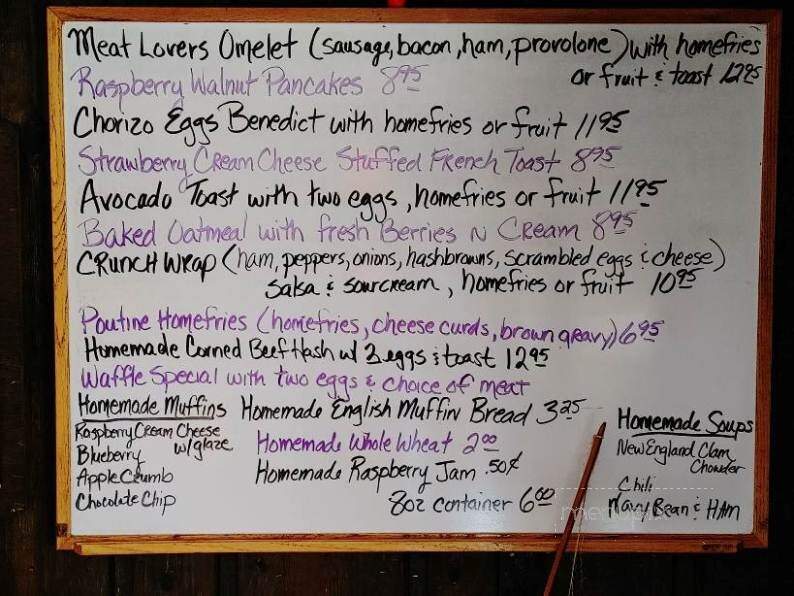 Meat Lovers Omelet (sausage, bacon, ham, provolone) with homefries
or fruit & toast 12 95
Raspberry Walnut Pancakes 8 95
Chorizo Eggs Benedict with homefries or fruit 11 95
Strawberry Cream Cheese Stuffed French Toast 8 95
Avocado Toast with two eggs, homefries or fruit 11 95
Baked Oatmeal with fresh Berries N Cream 8 95
Crunch Wrap (ham, peppers, onions, hashbrowns, scrambled eggs & cheese)
salsa & sourcream, homefries or fruit 10 95
Poutine Homefries (homefries, cheese curds, brown gravy) 6 95
Homemade Corned Beef Hash w/ 2 eggs & toast 12 95
Waffle Special with two eggs & choice of meat
Homemade Muffins
Raspberry Cream Cheese
w/glaze
Blueberry
Apple Crumb
Chocolate Chip
Homemade English Muffin Bread 3 25
Homemade Whole Wheat 2 00
Homemade Raspberry Jam .50¢
8oz container 6 00
Homemade Soups
New England Clam
Chowder
Chili
Navy Bean & Ham